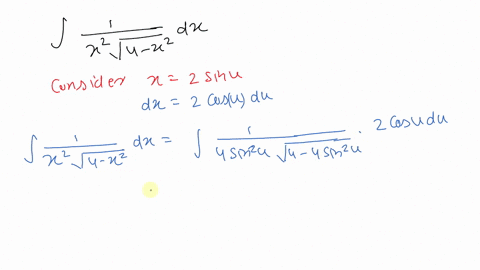 ∫ 1/(x²√(4-x²)) dx
Consider x = 2 sin u
dx = 2 cos(u) du
∫ 1/(x²√(4-x²)) dx = ∫ 1/(4 sin²u √(4-4 sin²u)) · 2 cos u du